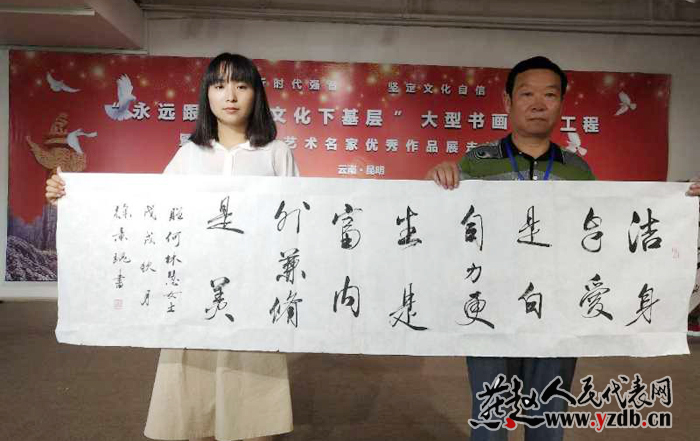 时代强 坚定文化自信
“永远跟 文化下基层”大型书画 工程
艺术名家优秀作品展走
云南·昆明
洁身
自爱
是白
自力更
生是
富内
外兼修
是美
何林慧女士
戊戌秋月
徐 书
燕赵人民代表网
www.yzdb.cn